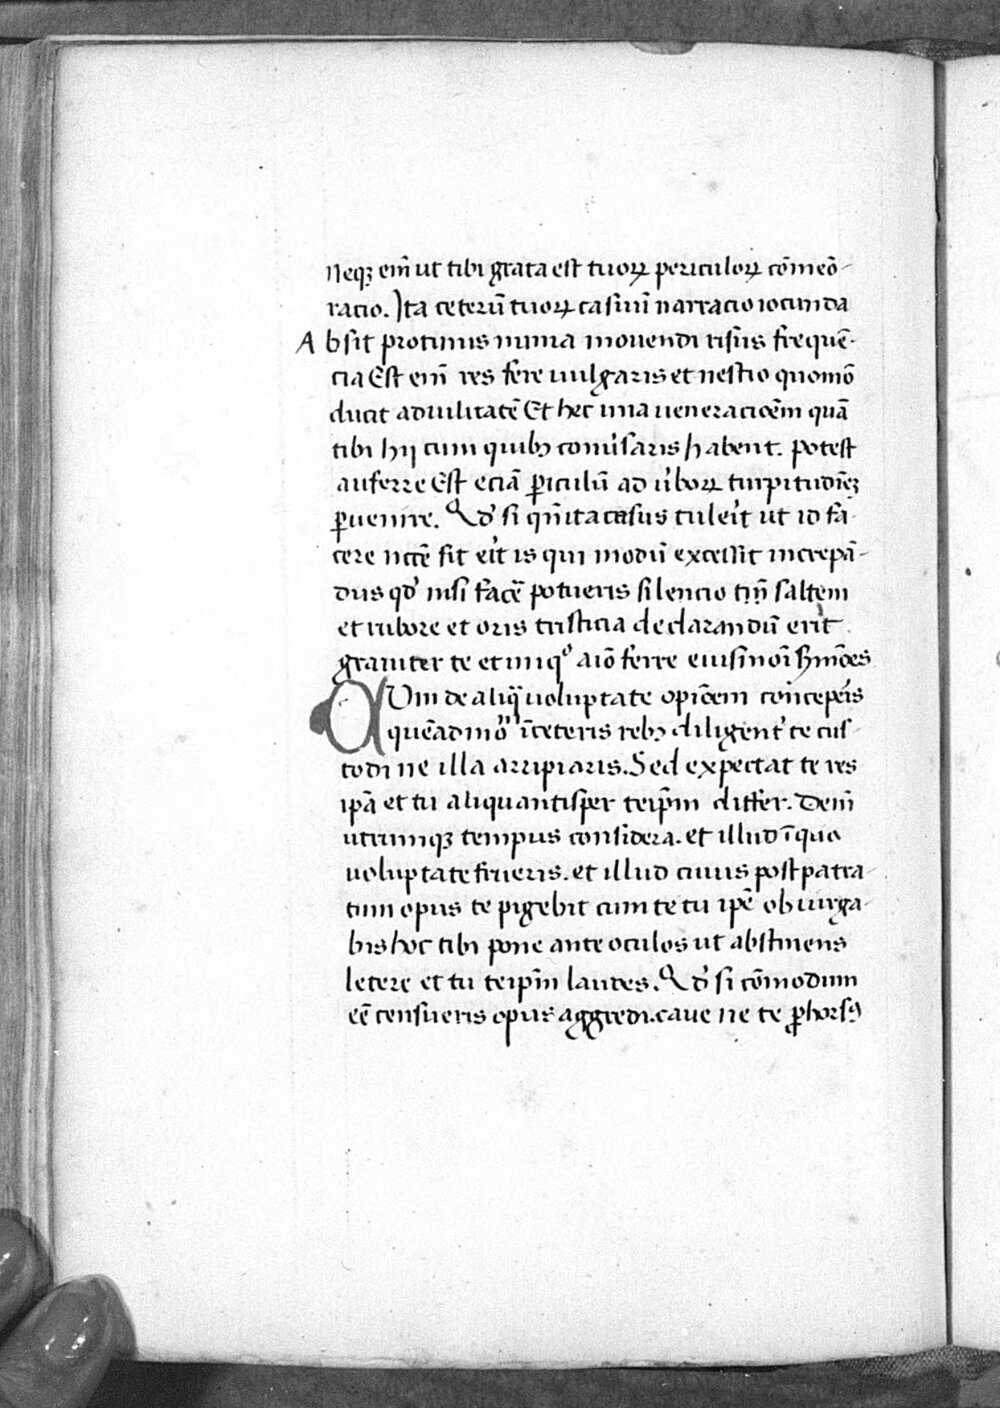 neqꝫ em̄ ut tibi grata est tuoꝝ periculoꝝ cōmeō
racio. Ita ceterū tuoꝝ casuū narracio iocunda
Absit protinus nimia mouendi risus frequē
cia Est em̄ res fere uulgaris et nestio quomō
ducit ad uilitatē Et hec una ueneracioēm quā
tibi hij cum quibꝫ conuʼsaris habent. potest
auferre Est eciā ꝑiculū ad uʼboꝝ turpitudīeꝫ
ꝑuenire. Qdʼ si qn̄ ita casus tuleʼit ut id fa
cere nccē sit eʼit is qui modū excessit increpā
dus qdʼ nisi facē potueris silencio tn̄ saltem
et rubore et oris tristicia declarandū erit
grauiter te et iniqͦ aīo ferre eiusmoī
Qum de aliq̄ uoluptate opiōem conceperis
quēadmoͦ ī ceteris rebꝫ diligentʼ te cus
todi ne illa arripiaris. Sed expectat te res
ipā et tu aliquantisper teip̄m differ. Deniͫ
utrumqꝫ tempus considera. et illud ī quo
uoluptate frueris. et illud cuius post patra
tum opus te pigebit cum te tu ipē obiurga
bis hoc tibi pone ante oculos ut abstinens
letere et tu teip̄m laudes. Qdʼ si cōmodum
eē censueris opus aggredi. caue ne te ꝓhorsꝰ